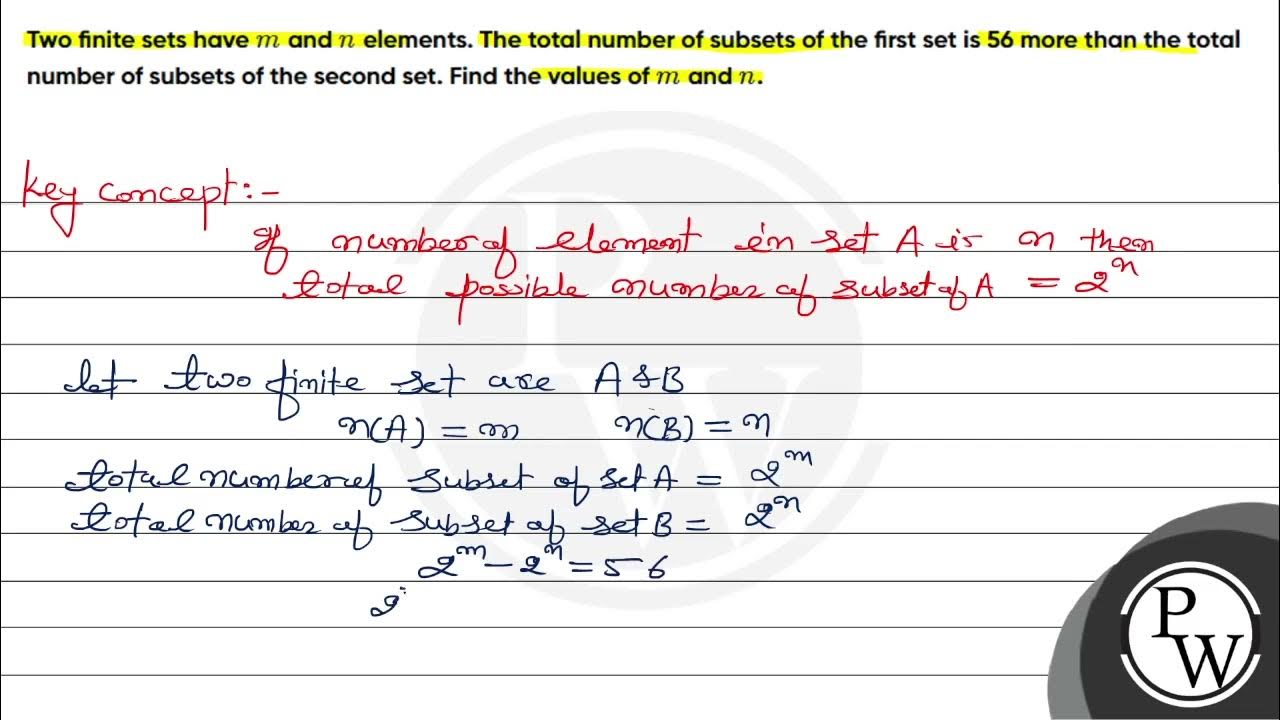 Two finite sets have m and n elements. The total number of subsets of the first set is 56 more than the total
number of subsets of the second set. Find the values of m and n.
Key concept:-
If number of element in set A is n then
total possible number of subset of A = 2ⁿ
let two finite set are A & B
n(A) = m n(B) = n
total number of subset of set A = 2ᵐ
total number of subset of set B = 2ⁿ
2ᵐ - 2ⁿ = 56
2
PW